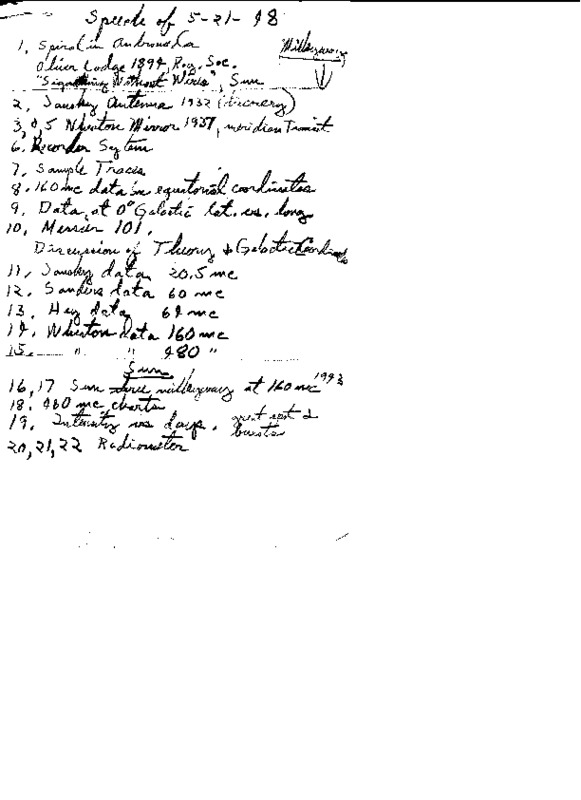 Speech of 5-21-48
1, Spiral in Andromeda
Milkyway
Oliver Lodge 1894, Roy. Soc.
"Signalling Without Wires", Sun
2, Jansky Antenna 1932 (discovery)
3, 4, 5 Wheaton Mirror 1937, meridian Transit
6. Recorder System
7, Sample Traces
8. 160 mc data in equatorial coordinates
9. Data at 0° Galactic lat. vs. long
10, Messier 101.
Discussion of Theory & Galactic
11, Jansky data 20.5 mc
12. Sanders data 60 mc
13. Hey data 64 mc
14. Wheaton data 160 mc
15. " " 480 "
Sun
16, 17 Sun milkyway at 160 mc 1943
18. 480 mc charts
19, Intensity vs days. great spot &
bursts
20, 21, 22 Radiometer